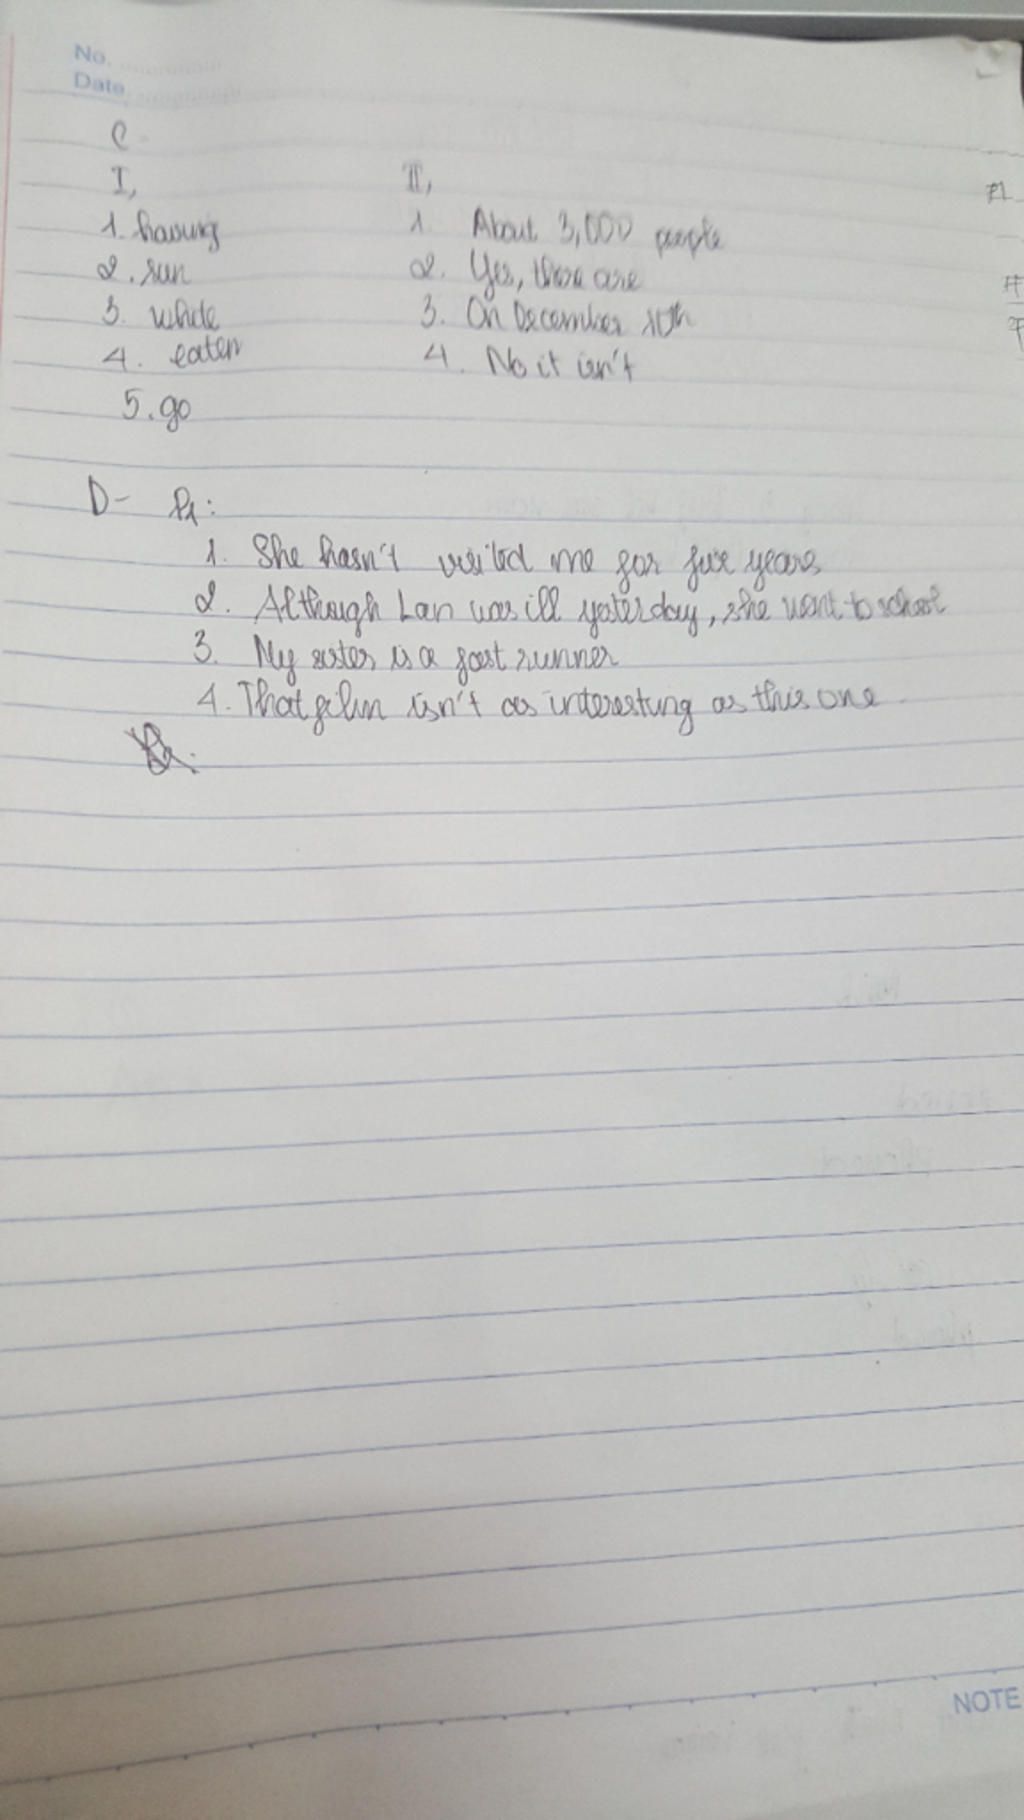 No.
Date
C-
I,
1. having
2. run
3. while
4. eaten
5. go
II,
1. About 3,000 people
2. Yes, there are
3. On December 10th
4. No it isn't
D-
1. She hasn't visited me for five years
2. Although Lan was ill yesterday, she went to school
3. My sister is a fast runner
4. That film isn't as interesting as this one
NOTE